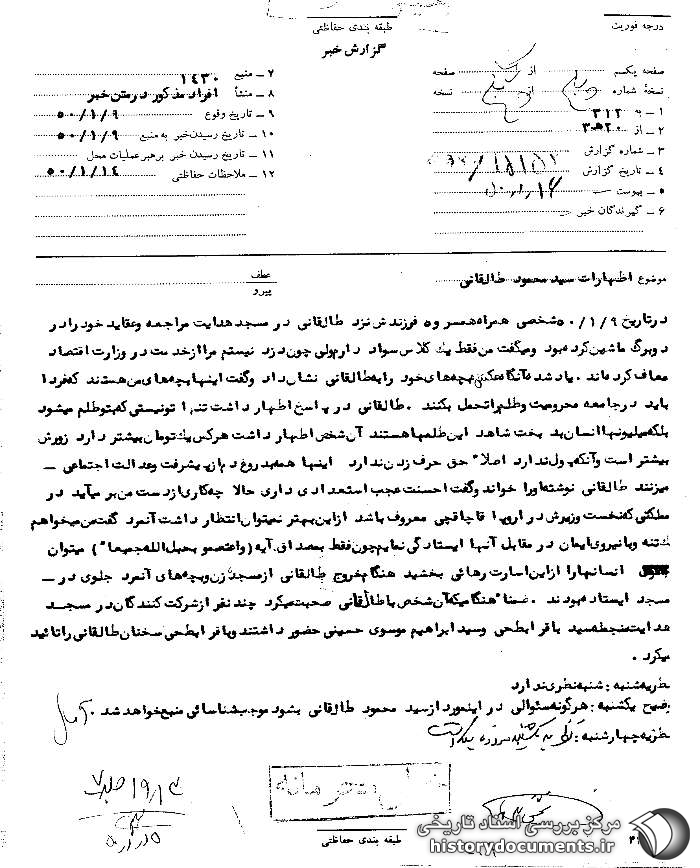 درجه فوریت
طبقه بندی حفاظتی
گزارش خبر
صفحه یکم از صفحه
نسخهٔ شماره از نسخه
۱ – به ۳۱۲
۲ – از ۲۰ه۳
۳ – شماره گزارش
۴ – تاریخ گزارش
۵ – پیوست
۶ – گیرندگان خبر
۷ – منبع ۱۴۳۰
۸ – منشأ افراد مذکور در متن خبر
۹ – تاریخ وقوع ۵۰/۱/۹
۱۰ – تاریخ رسیدن خبر به منبع ۵۰/۱/۹
۱۱ – تاریخ رسیدن خبر برهبر عملیات محل
۱۲ – ملاحظات حفاظتی ۵۰/۱/۱۴
موضوع اظهارات سید محمود طالقانی
عطف
پیرو
در تاریخ ۵۰/۱/۹ شخصی همراه همسر و ۵ فرزندش نزد طالقانی در مسجد هدایت مراجعه و عقاید خود را در
دو برگ ماشین کرده بود و میگفت من فقط یك کلاس سواد دارم ولی چون دزد نیستم مرا از خدمت در وزارت اقتصاد
معاف کرده اند . یاد شده آنگاه عکس بچه های خود را به طالقانی نشان داد و گفت اینها بچه های من هستند که فردا
باید در جامعه محرومیت و ظلم را تحمل بکنند . طالقانی در پاسخ اظهار داشت تنها تو نیستی که بتو ظلم میشود
بلکه میلیونها انسان بد بخت شاهد این ظلمها هستند آن شخص اظهار داشت هرکس یك تومان بیشتر دارد زورش
بیشتر است و آنکه پول ندارد اصلا" حق حرف زدن ندارد اینها همه بدروغ دم از پیشرفت و عدالت اجتماعی –
میزنند طالقانی نوشته او را خواند و گفت احسنت عجب استعدادی داری حالا چه کاری از دست من بر میآید در
مملکتی که نخست وزیرش در اروپا قاچاقچی معروف باشد از این بهتر نمیتوان انتظار داشت آنمرد گفت من میخواهم
یك تنه و با نیروی ایمان در مقابل آنها ایستادگی نمایم چون فقط بمصداق آیه (واعتصمو بحبل الله جمیعا") میتوان
انسانها را از این اسارت رهائی بخشید هنگام خروج طالقانی از مسجد زن و بچه های آنمرد جلوی در –
مسجد ایستاده بودند . ضمنا" هنگامیکه آن شخص با طالقانی صحبت میکرد چند نفر از شرکت کنندگان در مسجد
هدایت منجمله سید باقر ابطحی و سید ابراهیم موسوی حسینی حضور داشتند و باقر ابطحی سخنان طالقانی را تائید
میکرد .
نظریه شنبه : شنبه نظری ندارد
توضیح یکشنبه : هرگونه سئوالی در اینمورد از سید محمود طالقانی بشود موجب شناسائی منبع خواهد شد .
نظریه چهارشنبه :
خیلی محرمانه
طبقه بندی حفاظتی
مرکز بررسی اسناد تاریخی
historydocuments.ir